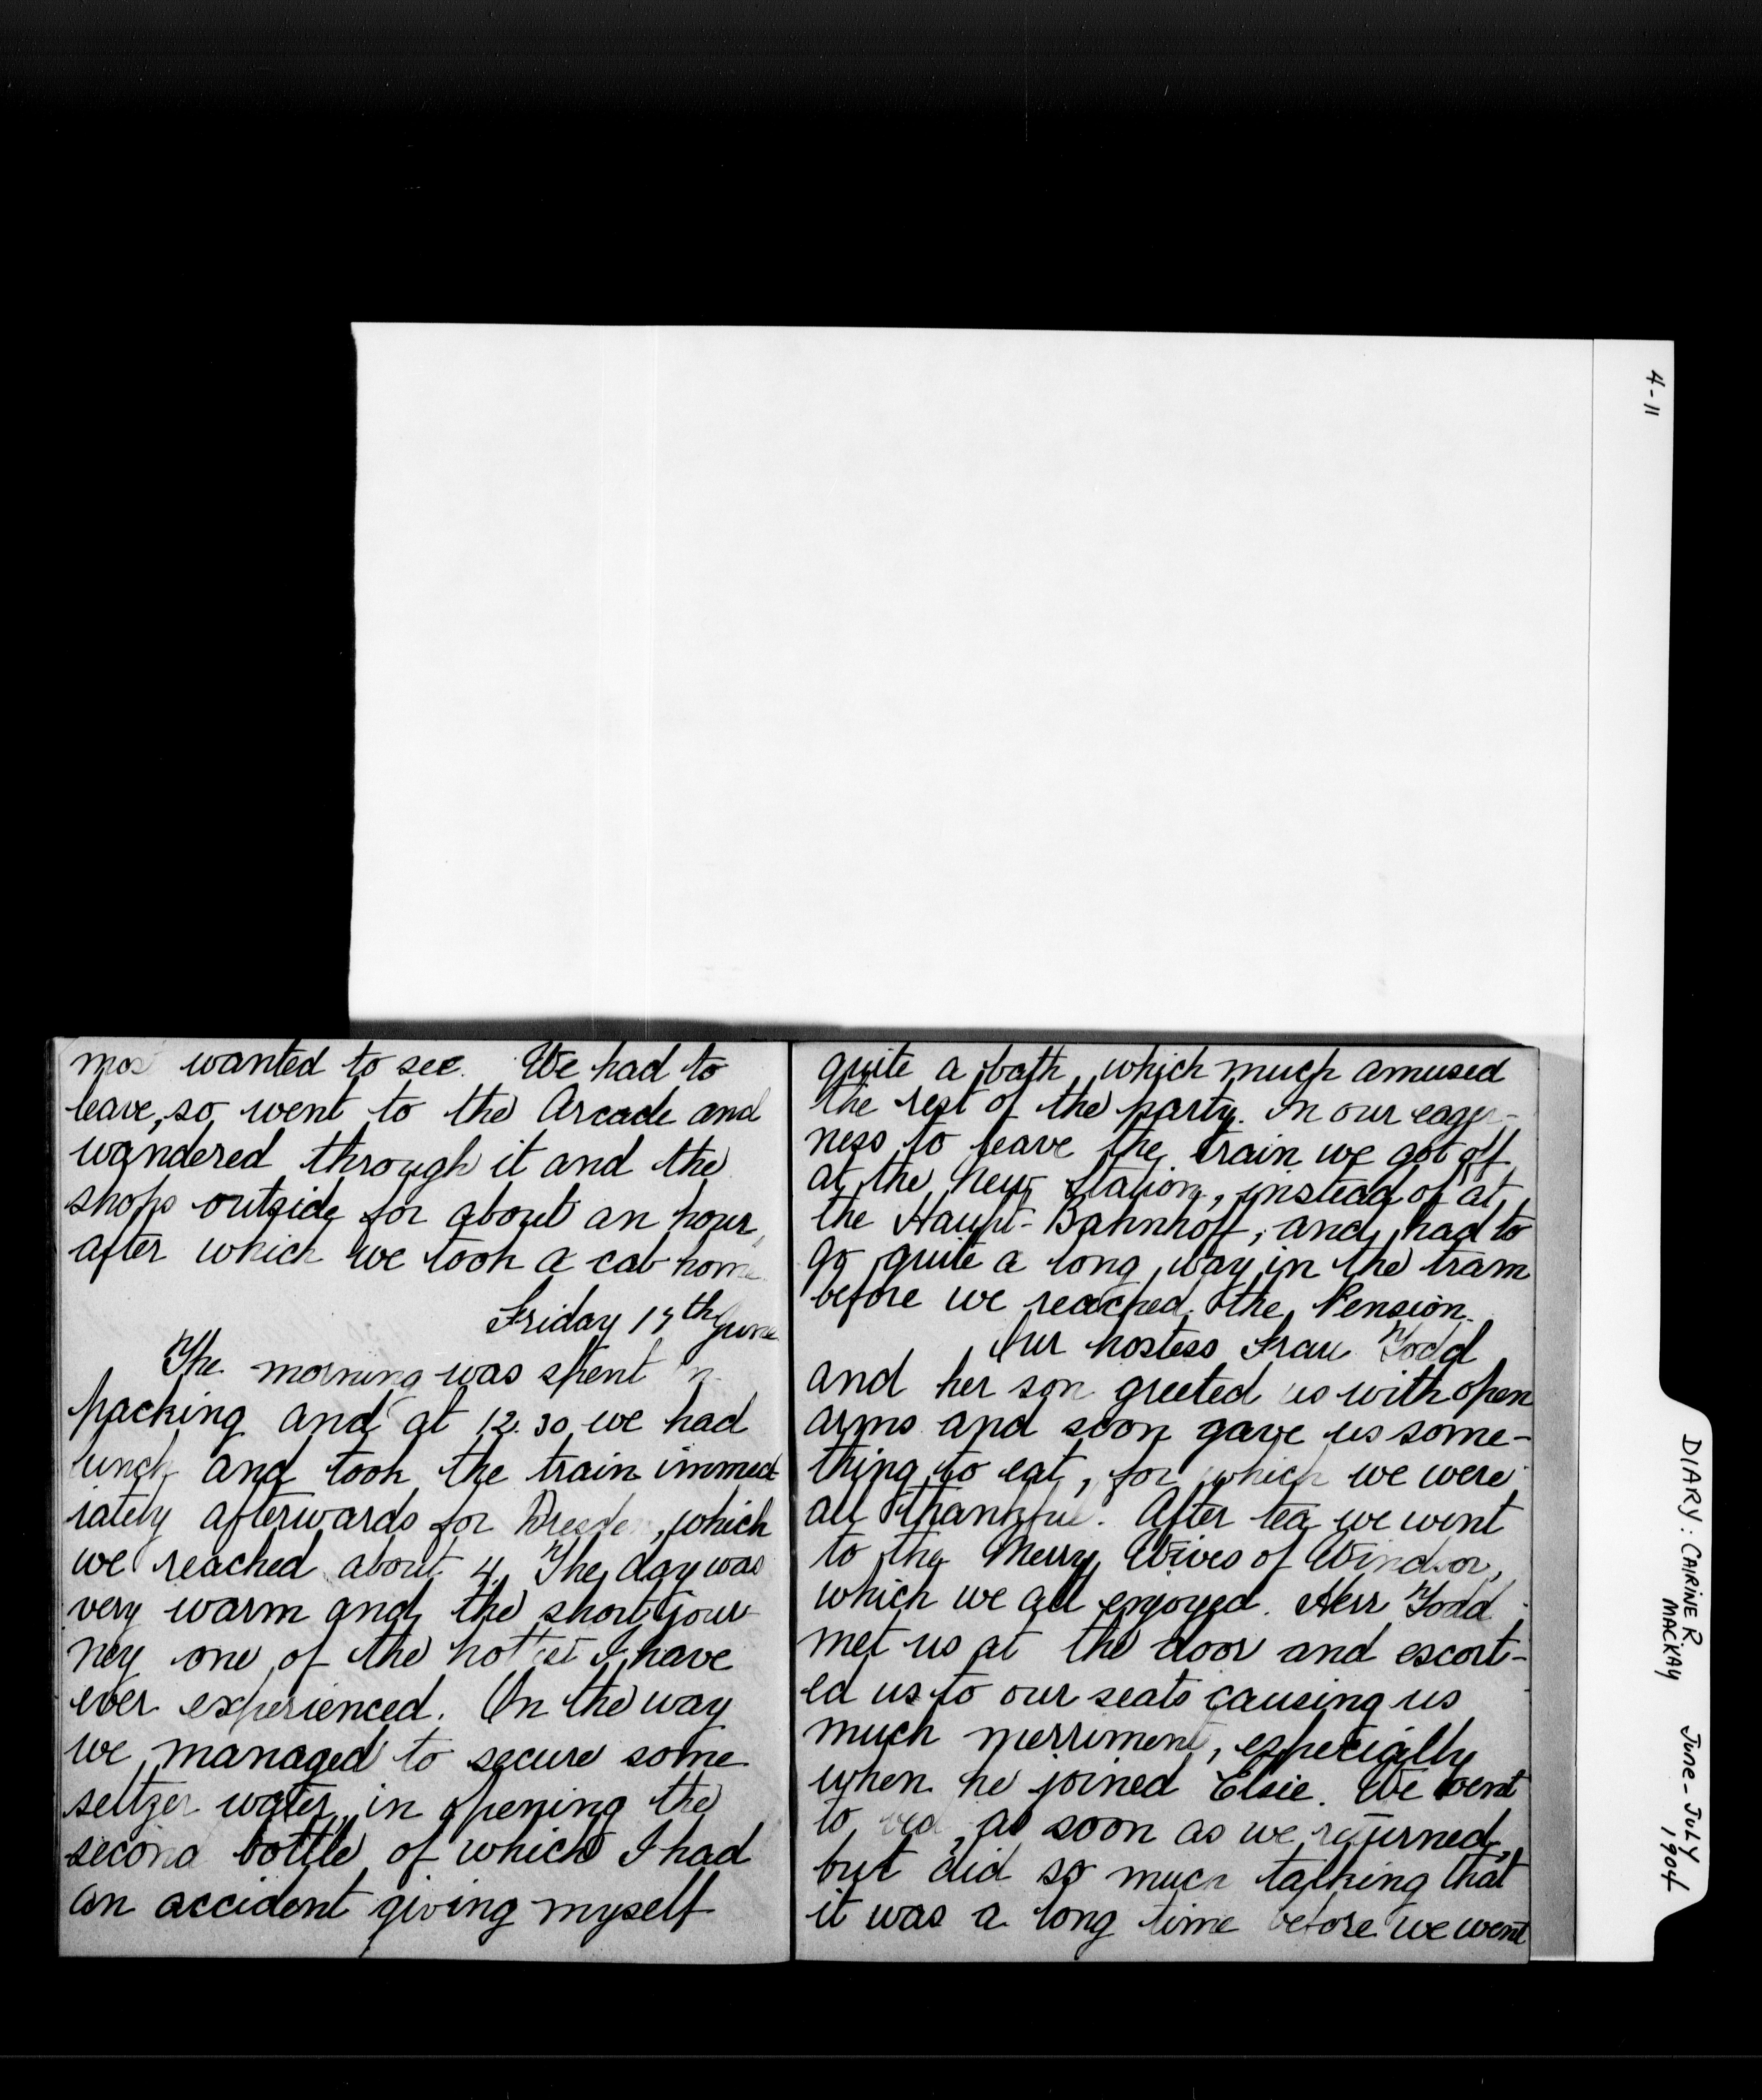 most wanted to see. We had to
leave, so went to the Arcade and
wandered through it and the
shops outside for about an hour,
after which we took a cab home
Friday 17th June
The morning was spent in
packing and at 12.30 we had
lunch and took the train immed-
iately afterwards for Dresden, which
we reached about 4. The day was
very warm and the short jour-
ney one of the hottest I have
ever experienced. On the way
we managed to secure some
seltzer water, in opening the
second bottle of which I had
an accident giving myself
quite a bath, which much amused
the rest of the party. In our eager-
ness to leave the train we got off
at the new station, instead of at
the Haupt-Bahnhoff, and had to
go quite a long way in the tram
before we reached the Pension.
Our hostess Frau Todd
and her son greeted us with open
arms and soon gave us some-
thing to eat, for which we were
all thankful. After tea we went
to the Merry Wives of Windsor,
which we all enjoyed. Herr Todd
met us at the door and escort-
ed us to our seats causing us
much merriment, especially
when he joined Elsie. We went
to bed as soon as we returned,
but did so much talking that
it was a long time before we went
4-11
DIARY: CAIRINE R. MACKAY
June - July 1904